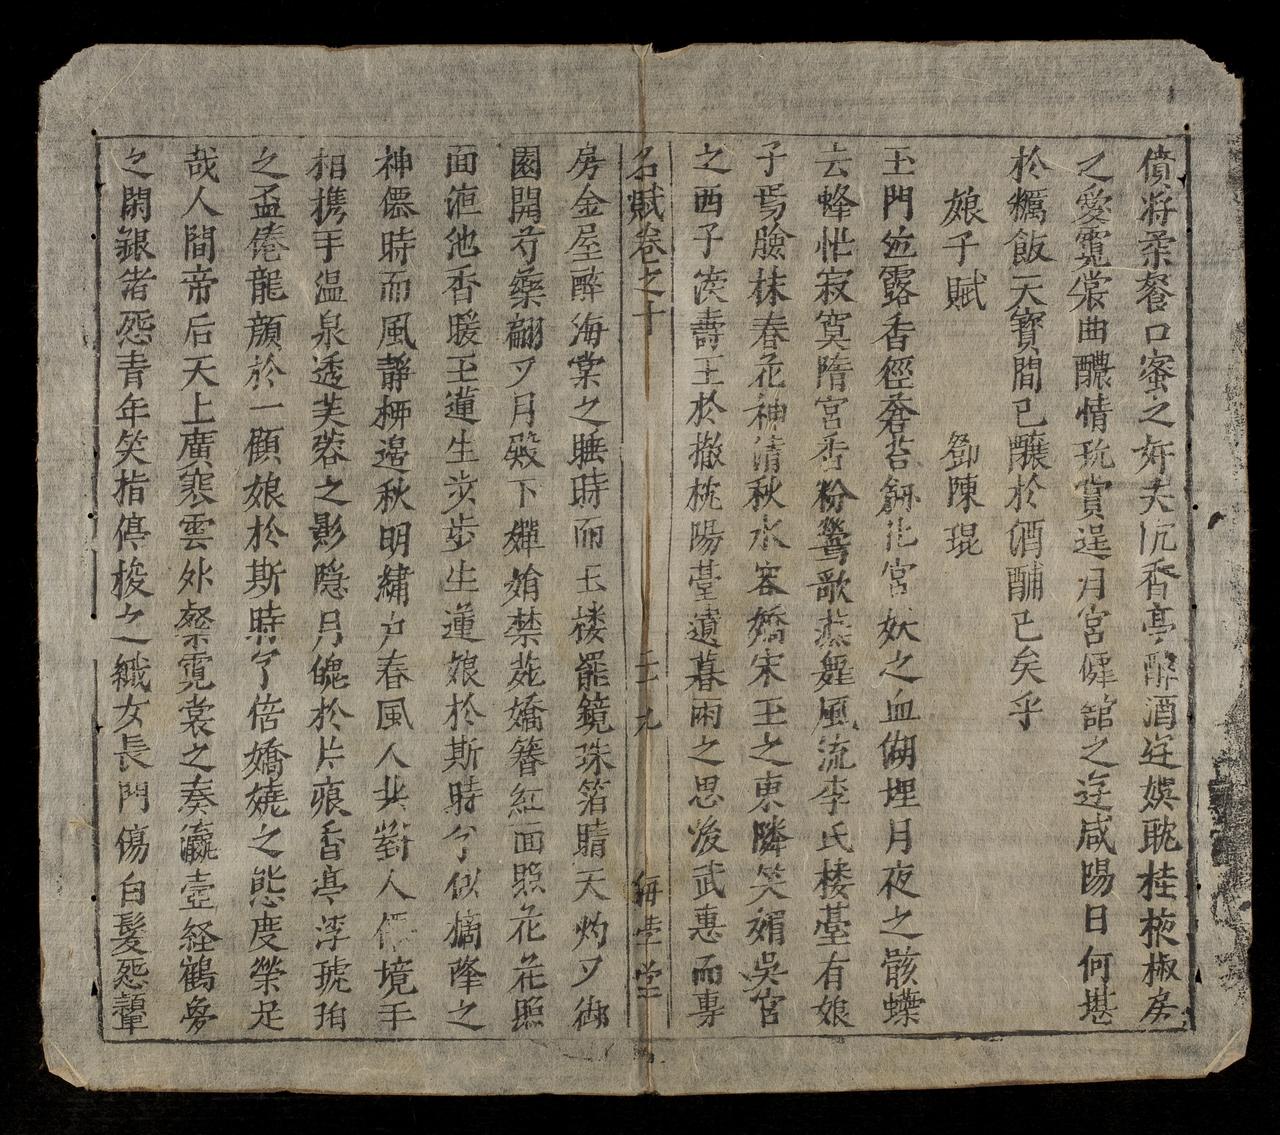 債將柔餐口蜜之好矣沉香亭醉酒筵娛耽桂掖椒房
之愛霓裳曲醲情玩賞逞月宮僊舘之筵咸陽日何堪
於糲飯天寳間已釀於酒酺已矣乎
娘子賦 鄧陳琨
玉門竝露香徑蒼苔釼化宮妖之血僩埋月夜之骸蝶
去蜂忙寂寞隋宮香粉鶯歌燕舞風流李氏楼臺有娘
子焉臉抹春花神清秋水容嬌宋玉之東隣笑媚吳宮
之西子漢壽王於撤枕陽臺遺暮雨之思後武惠而專
名賦卷之十 三十九 海堂堂
房金屋醉海棠之睡時而玉楼罷鏡珠箔睛天灼々御
園開芍藥翩々月殿下嬋娟禁苑嬌簪紅面照花花照
面洍池香暖玉蓮生步步生蓮娘於斯時兮似摘降之
神僊時而風靜栁邉秋明繡户春風人共對人僊境手
相携手温泉透芙蓉之影隐月魄於片痕香亭浮琥珀
之盃倦龍顔於一顧娘於斯時兮倍嬌嬈之態度榮足
哉人間帝后天上廣寒雲外粲霓裳之奏瀛壺経鶴夢
之閑銀渚怨青年笑指停梭之織女長門傷白髮怨輦